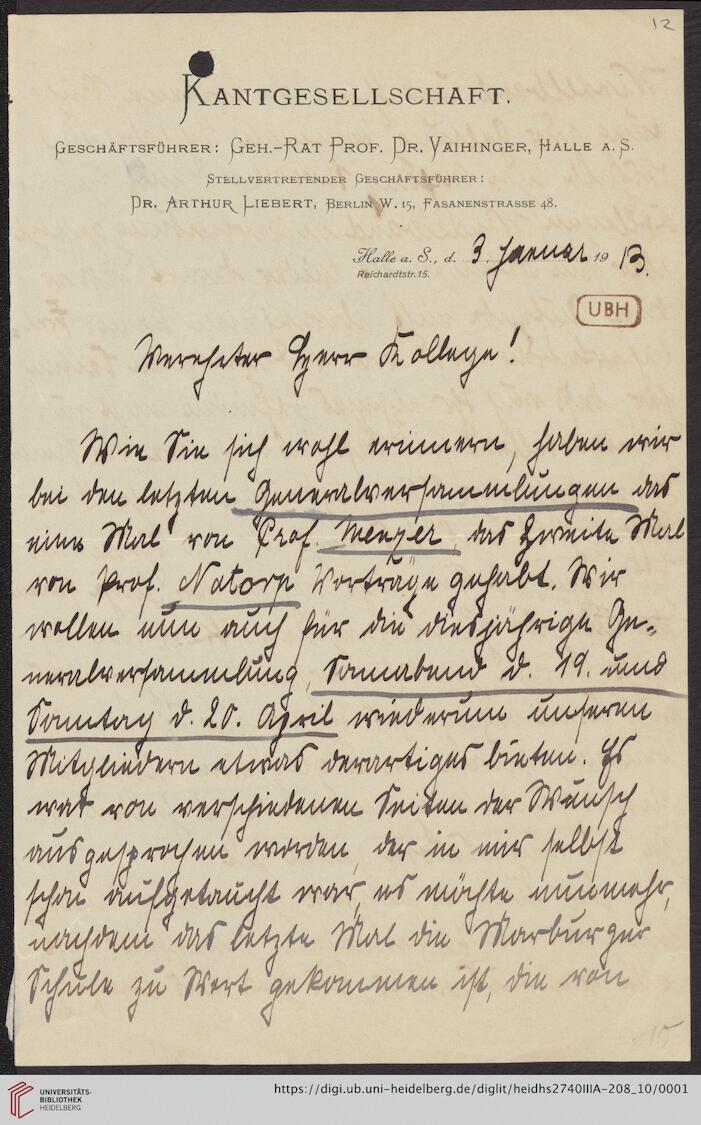 12
KANTGESELLSCHAFT.
GESCHÄFTSFÜHRER: GEH.-RAT PROF. DR. VAIHINGER, HALLE A. S.
STELLVERTRETENDER GESCHÄFTSFÜHRER:
DR. ARTHUR LIEBERT, BERLIN W. 15, FASANENSTRASSE 48.
Halle a. S., d. 3. Januar 1913.
Reichardtstr. 15.
UBH
Verehrter Herr Kollege!
Wie Sie sich wohl erinnern, haben wir
bei den letzten Generalversammlungen das
eine Mal von Prof. Menzer, das zweite Mal
von Prof. Natorp Vorträge gehabt. Wir
wollen nun auch für die diesjährige Ge-
neralversammlung, Sonnabend d. 19. und
Sonntag d. 20. April wiederum unseren
Mitgliedern etwas derartiges bieten. Es
war von verschiedenen Seiten der Wunsch
ausgesprochen worden, der in mir selbst
schon aufgetaucht war, es möchte nunmehr,
nachdem das letzte Mal die Marburger
Schule zu Wort gekommen ist, die von
UNIVERSITÄTS-
BIBLIOTHEK
HEIDELBERG
https://digi.ub.uni-heidelberg.de/diglit/heidhs2740IIIA-208_10/0001